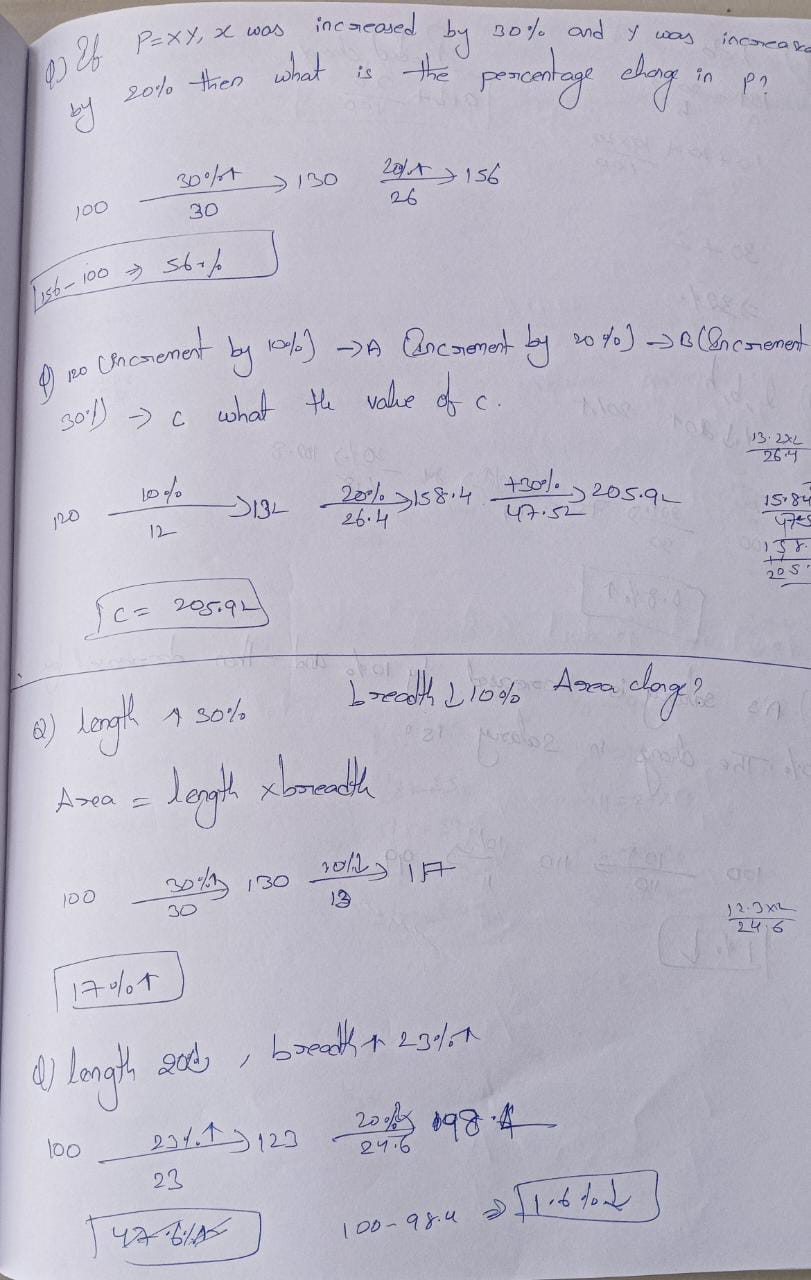 Q) If P=XY, x was increased by 30% and y was increase
by 20% then what is the percentage change in P?
100 30%↑ → 130 20%↑ → 156
30 26
156-100 ⇒ 56%
Q) 120 (Increment by 10%) → A (Increment by 20%) → B (Increment
30%) → C what the value of C.
13.2x2
26.4
120 10% → 132 20% → 158.4 +30% → 205.92
12 26.4 47.52
15.84
475
158.
205
C = 205.92
Q) length ↑ 30% breadth ↓ 10% Area change?
Area = length x breadth
100 30%↑ → 130 10%↓ → 117
30 13
12.3x2
24.6
17%↑
Q) length 20%↓, breadth ↑ 23%↑
100 23%↑ → 123 20%↓ → 98.4
23 24.6
47.6%↑
100-98.4 ⇒ 1.6%↓